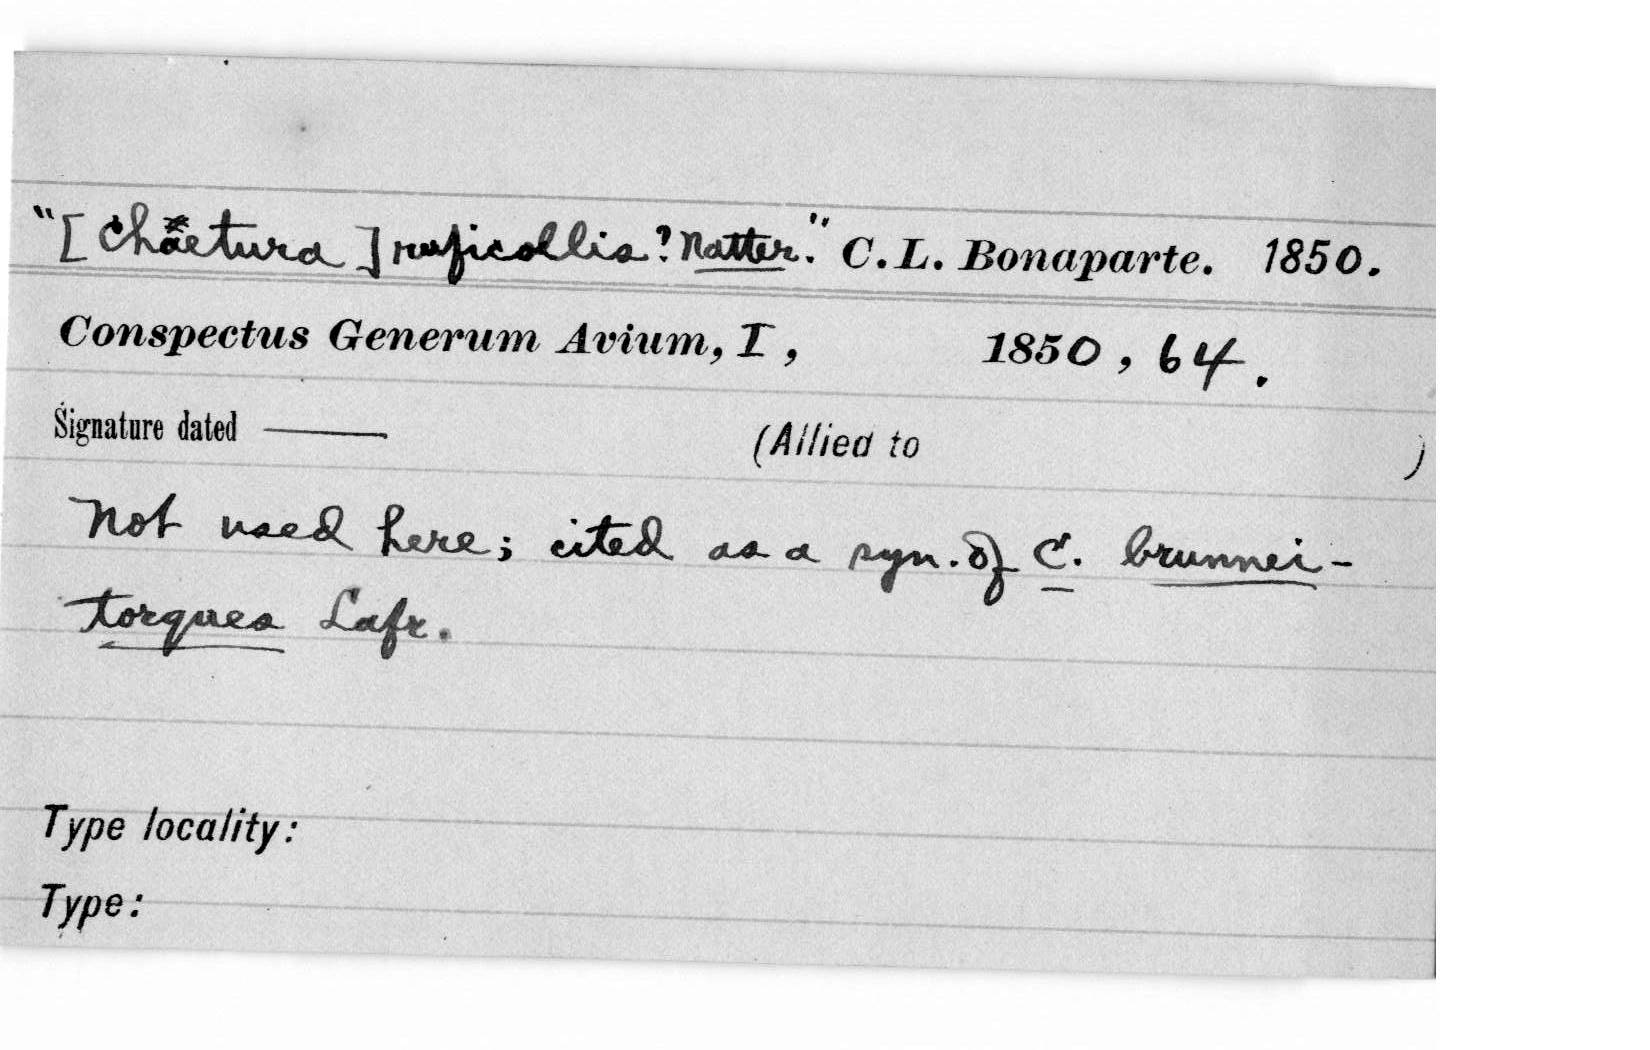 "[Chaetura] ruficollis? Natter." C. L. Bonaparte. 1850.
Conspectus Generum Avium, I, 1850, 64.
Signature dated —— (Allied to )
Not used here; cited as a syn. of C. brunnei-
torques Lafr.
Type locality:
Type: